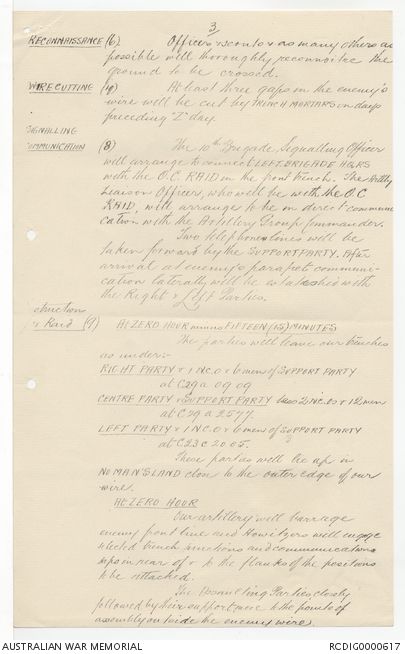 3
RECONNAISSANCE (6). Officers & scouts & as many others as
possible will thoroughly reconnoitre the
ground to be crossed.
WIRE CUTTING (7) At least three gaps in the enemy's
wire will be cut by TRENCH MORTARS on days
preceding "Z" day.
SIGNALLING
COMMUNICATION (8) The 10th Brigade Signalling Officer
will arrange to connect LEFT BRIGADE HQRS
with the O.C. RAID in the front trench. The Artillery
Liaison Officers, who will be with the O.C
RAID, will arrange to be in direct commun
cation with the Artillery Group Commander.
Two telephone lines will be
taken forward by the SUPPORT PARTY. After
arrival at enemy's parapet communi-
cation laterally will be established with
the Right & Left Parties.
struction
Raid (9) At ZERO HOUR minus FIFTEEN (15) MINUTES
The parties will leave our trenches
as under:-
RIGHT PARTY & 1 N.C.O & 6 men of SUPPORT PARTY
at C29a 09.09
CENTRE PARTY & SUPPORT PARTY less 2 NC.Os & 12 men
at C29a 2577.
LEFT PARTY & 1 N.C.O & 6 men of SUPPORT PARTY
at C23C 2005.
These parties will lie up in
NO MAN'S LAND close to the outer edge of our
wire.
At ZERO HOUR
Our artillery will barrage
enemy front line and Howitzers will engage
selected trench junctions and communications
in rear of & to the flanks of the positions
to be attacked.
The Assaulting Parties, closely
followed by their support move to the points of
assembly outside the enemy wire.
AUSTRALIAN WAR MEMORIAL
RCDIG0000617